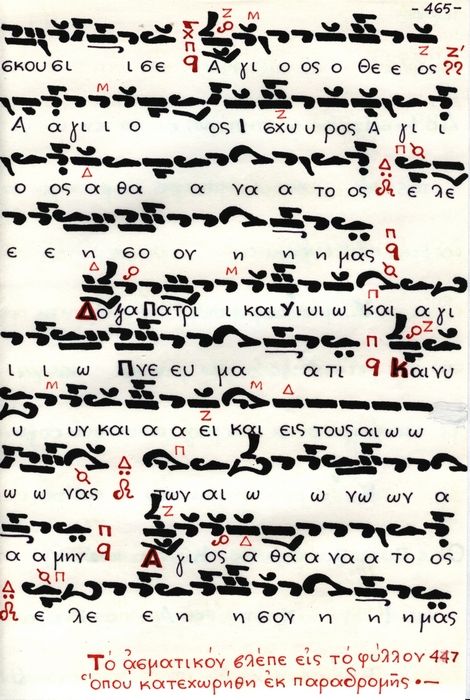 - 465 -
σκουσι ισε Α γι ο ος ο θε ε ος
Α α γι ι ο ος Ι σχυ υ ρος Α γι ι
ο ος α θα α να α το ος ε λε
ε ε η σο ον η η η μας
Δο ξα Πατρι ι και Υι υι ω και α γι
ι ι ω Πνε ευ μα α τι Και νυ
υ υν και α α ει και εις τους αι ω ω
ω ω νας των αι ω ω νω ων α
α α μην Α γι ος α θα α να α το ος
ε λε ε η η σον η η η μας
Τό ᾀσματικόν βλέπε εἰς τό φύλλον 447
ὅπου κατεχωρήθη ἐκ παραδρομῆς